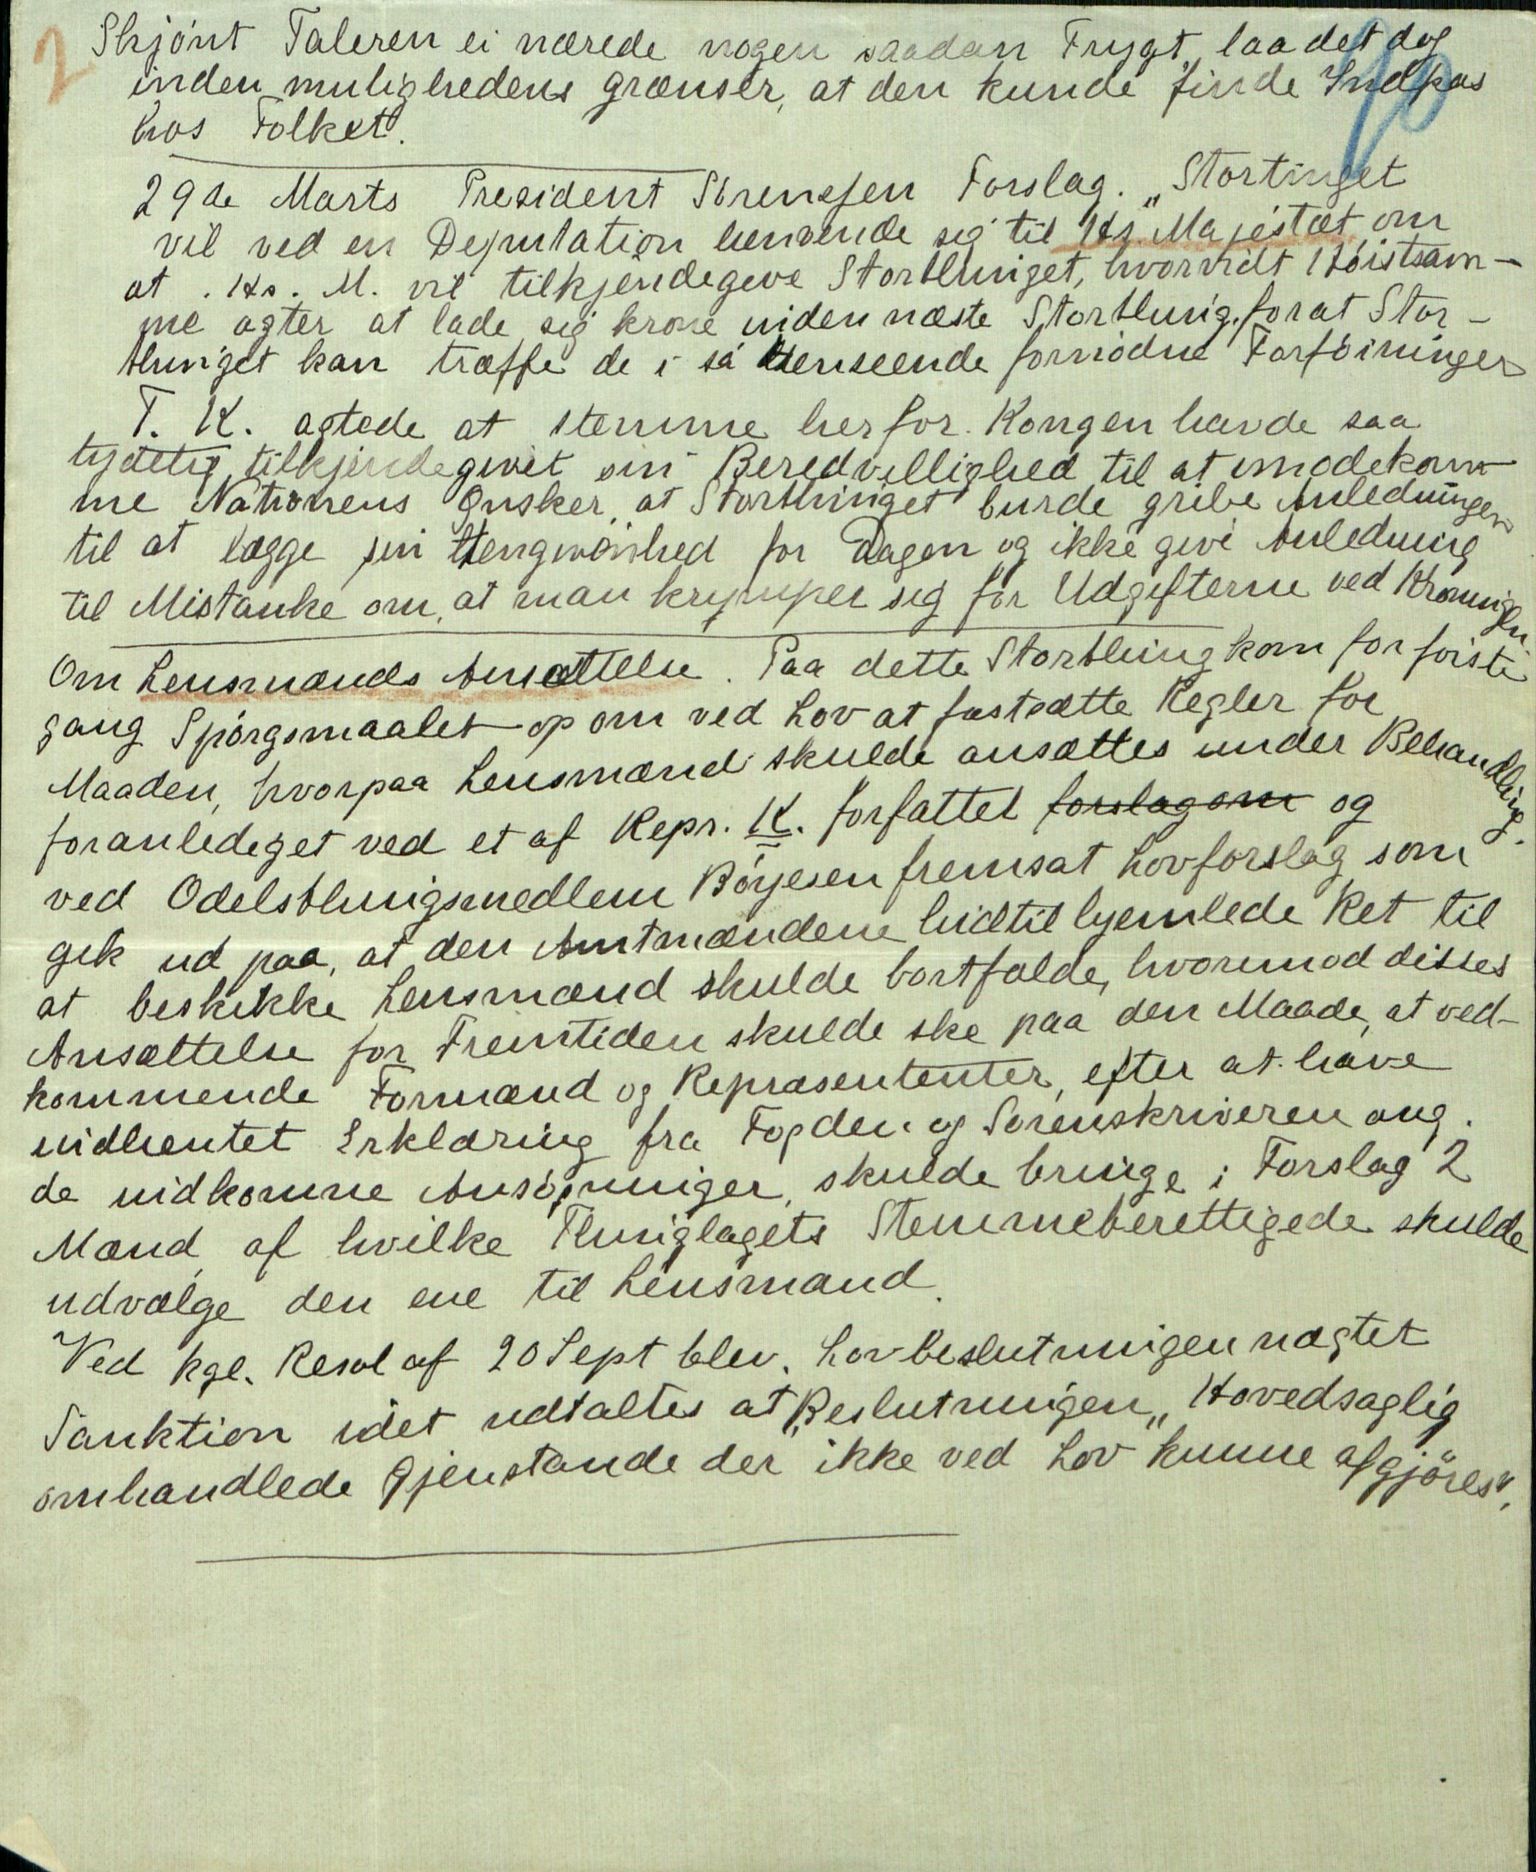 2
Skjønt Taleren ei nærede nogen saadan Frygt, laa det dog
inden mulighedens grænser, at den kunde finde Indpas
hos Folket.
29de Marts President Sørenssen Forslag. „Stortinget
vil ved en Deputation henvende sig til Hs. Majestæt, om
at . Hs. M. vil tilkjendegive Storthinget, hvorvidt Høistsam-
me agter at lade sig krone inden næste Storthing, forat Stor-
thinget kan træffe de i så Henseende fornødne Forføininger
T. K. agtede at stemme herfor. Kongen havde saa
tydelig tilkjendegivet sin Beredvillighed til at imødekom-
me Nationens Ønsker, at Storthinget burde gribe Anledningen
til at lægge sin Hengivenhed for Dagen og ikke give Anledning
til Mistanke om, at man krymper sig for Udgifterne ved Kroningen.
Om Lensmænds Ansættelse. Paa dette Storthing kom for første
gang Spørgsmaalet op om ved Lov at fastsætte Regler for
Maaden, hvorpaa Lensmænd skulde ansættes under Behandling.
foranlediget ved et af Repr. K. forfattet forslag om og
ved Odelsthingsmedlem Böyesen fremsat Lovforslag, som
gik ud paa, at den Amtmændene hidtil hjemlede Ret til
at beskikke Lensmænd skulde bortfalde, hvorimod disses
Ansættelse for Fremtiden skulde ske paa den Maade, at ved-
kommende Formænd og Repræsententer, efter at have
indhentet Erklæring fra Fogden og Sorenskriveren ang.
de indkomne Ansøgninger, skulde bringe i Forslag 2
Mænd, af hvilke Thinglagets Stemmeberettigede skulde
udvælge den ene til Lensmand.
Ved kgl. Resol af 20 Sept blev. Lovbeslutningen nægtet
Sanktion idet udtaltes at Beslutningen „Hovedsaglig
omhandlede Gjenstande der ikke ved Lov kunne afgjöres".